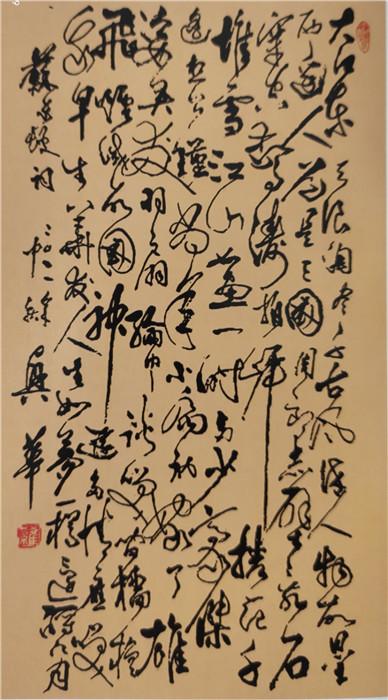 大江东去浪淘尽千古风流人物故垒
西边人道是三國周郎赤壁乱石
穿空惊涛拍岸捲起千
堆雪江山如画一时多少豪傑
遥想公瑾当年小乔初嫁了雄
姿英发羽扇纶巾谈笑间樯橹
飛煙滅故國神遊多情应笑
我早生华发人生如梦一樽还酹江月
蘇东坡词
興華